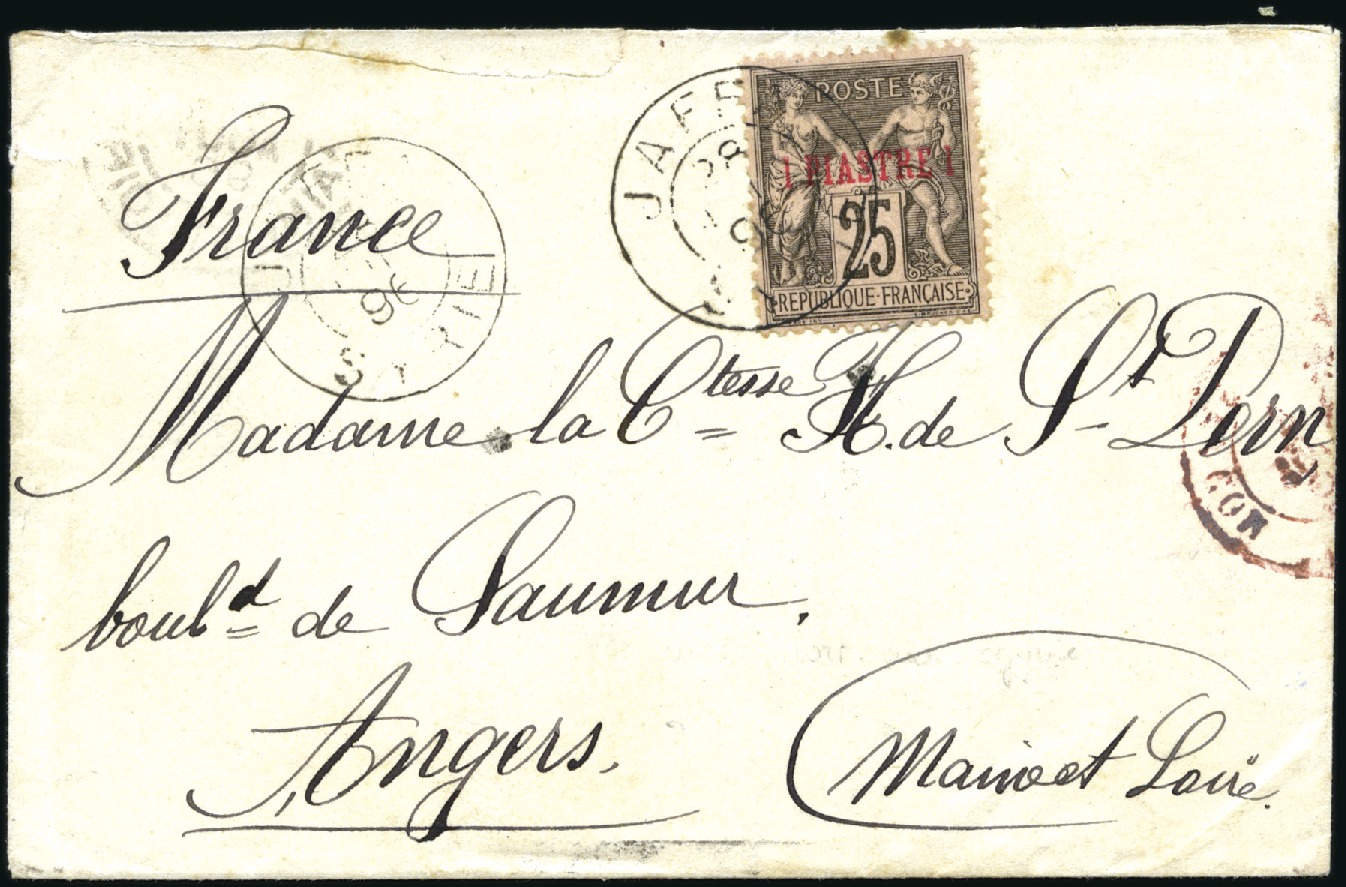 POSTE
1 PIASTRE 1
25
REPUBLIQUE FRANÇAISE
JAFFA
28
96
France
SYRIE
96
Madame la Ctesse H. de St Pern
bould de Saumur,
Angers.
Maine et Loire.